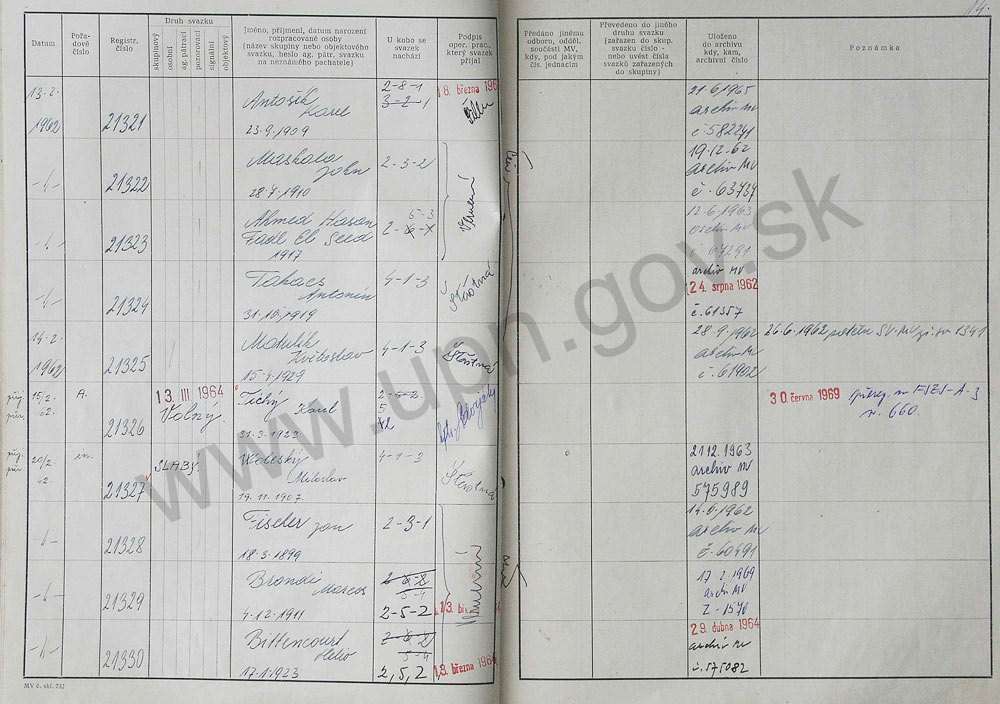 14.
Datum
Pořa-
dové
číslo
Registr.
číslo
Druh svazku
skupinový
osobní
ag. pátrací
pozorovací
signální
objektový
Jméno, příjmení, datum narození
rozpracované osoby
(název skupiny nebo objektového
svazku, heslo ag. pátr. svazku
na neznámého pachatele)
U koho se
svazek
nachází
Podpis
oper. prac.,
který svazek
přijal
Předáno jinému
odboru, odděl.
součásti MV,
kdy, pod jakým
čís. jednacím
Převedeno do jiného
druhu svazku
(zařazen do skup.
svazku číslo -
nebo uvést čísla
svazků zařazených
do skupiny)
Uloženo
do archivu
kdy, kam,
archivní číslo
Poznámka
13.2.
1962
21321
Antošík
Karel
23.9.1909
2-8-1
3-2-1
18. března 196
21.6.1965
archiv MV
č. 582241
21322
Maskala
John
28.7.1910
2-3-2
19.12.62
archiv MV
č. 63737
21323
Ahmed Hasan
Fadl El Seed
1917
5-3
12.6.1963
archiv MV
č. 67291
21324
Takacs
Antonín
31.10.1919
4-1-3
Šťastná
archiv MV
24. srpna 1962
č. 61357
14.2.
1962
21325
Matulík
Květoslav
15.4.1929
4-1-3
Šťastná
28.9.1962
archiv MV
č. 61902
26.6.1962
1341
15/2.
62.
A.
21326
13. III 1964
Volný.
Tichý
Karel
31.3.1923
30. června 1969
přereg. na FSZS-A-3
č. 660.
20/2.
62.
21327
SLABÝ.
Miloslav
19.11.1907.
4-1-3
Šťastná
21.12.1963
archiv MV
575989
21328
Fischer Jan
18.3.1899
2-3-1
1962
archiv MV
č. 60491
21329
Brandi
Marcos
4.12.1911
5-4
2-5-2
13. bře
17.2.1969
archiv MV
Z-1576
21330
Bittencourt
Helio
17.1.1923
5-4
2,5,2
13. března 196
29. dubna 1964
archiv MV
č. 575082
MV č. skl. 732
www.upn.gov.sk